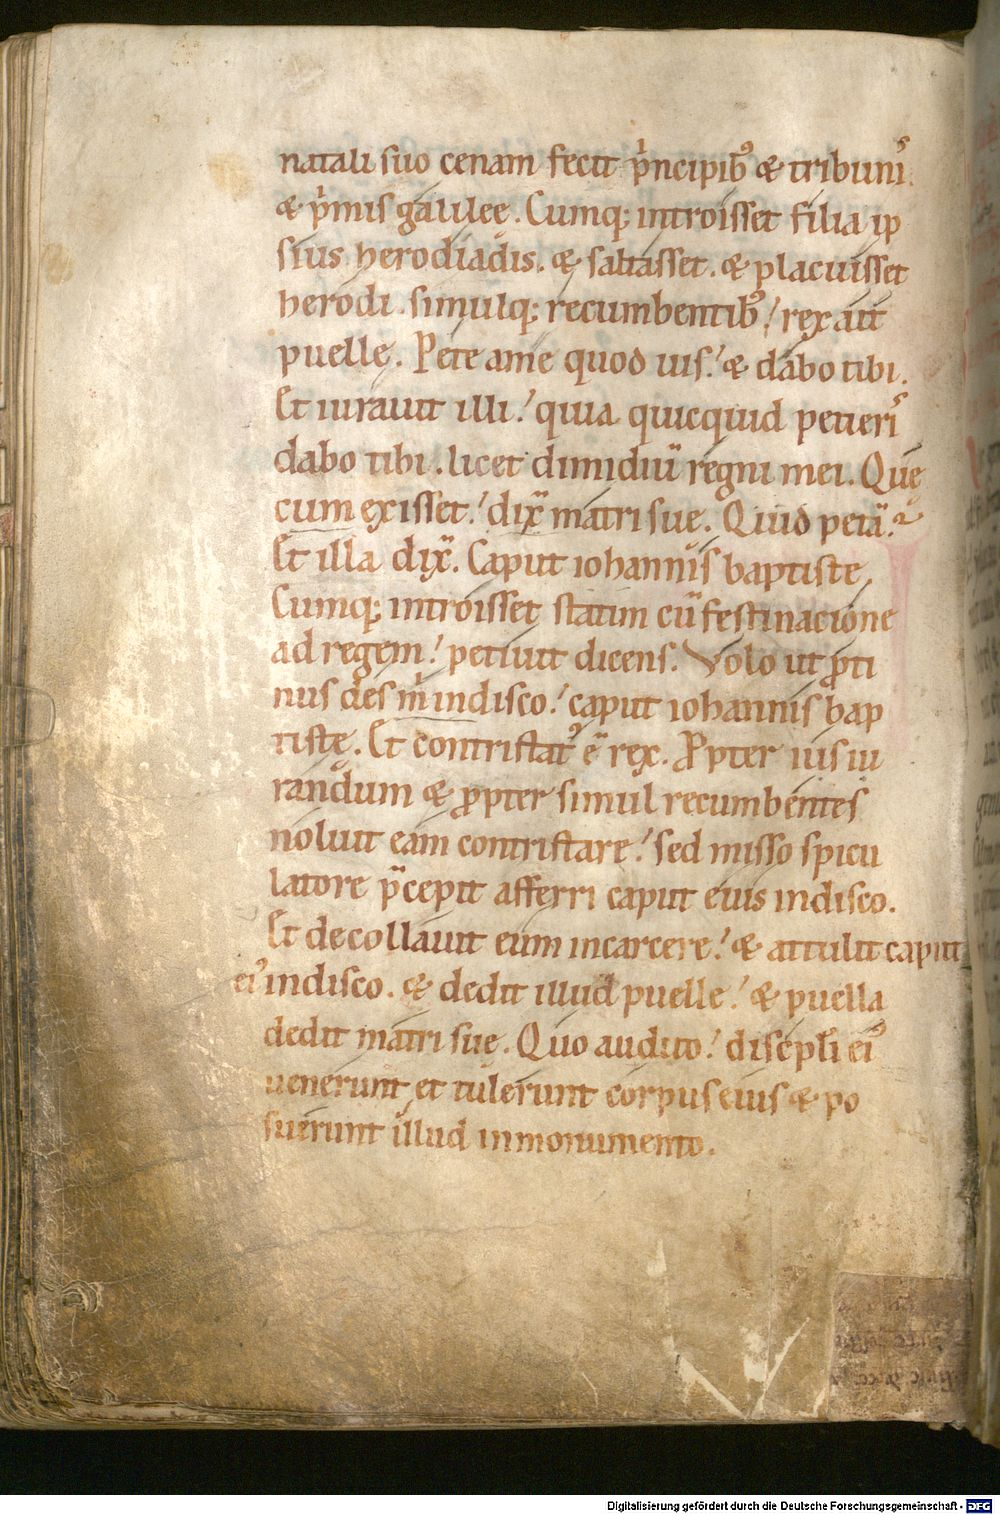 natali suo cenam fecit p̍ncipib᷒ & tribuni᷒.
& p̍mis galileę. Cumq; introisset filia ip
sius herodiadis. & saltasset. & placuisset
herodi. simulq; recumbentib᷒; rex ait
puellę. Pete ame quod uis. & dabo tibi.
Et iurauit illi. quia quicquid petieri᷒
dabo tibi. licet dimidiū regni mei. Quę
cum exisset. dix̄ matri suę. Quid petā?
Et illa dix̄. Caput iohannis baptiste,
Cumq; introisset statim cū festinacione
ad regem. petiuit dicens. Volo ut ꝓti
nus des m̍ indisco. caput iohannis bap
tistę. Et contristat᷒ ē rex. Ꝓpter ius iu
randum & ꝓpter simul recumbentes
noluit eam contristare. sed misso spicu
latore p̄cepit afferri caput eius indisco.
Et decollauit eum incarcere. & attulit caput
ei᷒ indisco. & dedit illud puelle. & puella
dedit matri suę. Quo audito. discipl̍i ei᷒
uenerunt et tulerunt corpus eius & po
suerunt illud inmonumento.
Digitalisierung gefördert durch die Deutsche Forschungsgemeinschaft - DFG